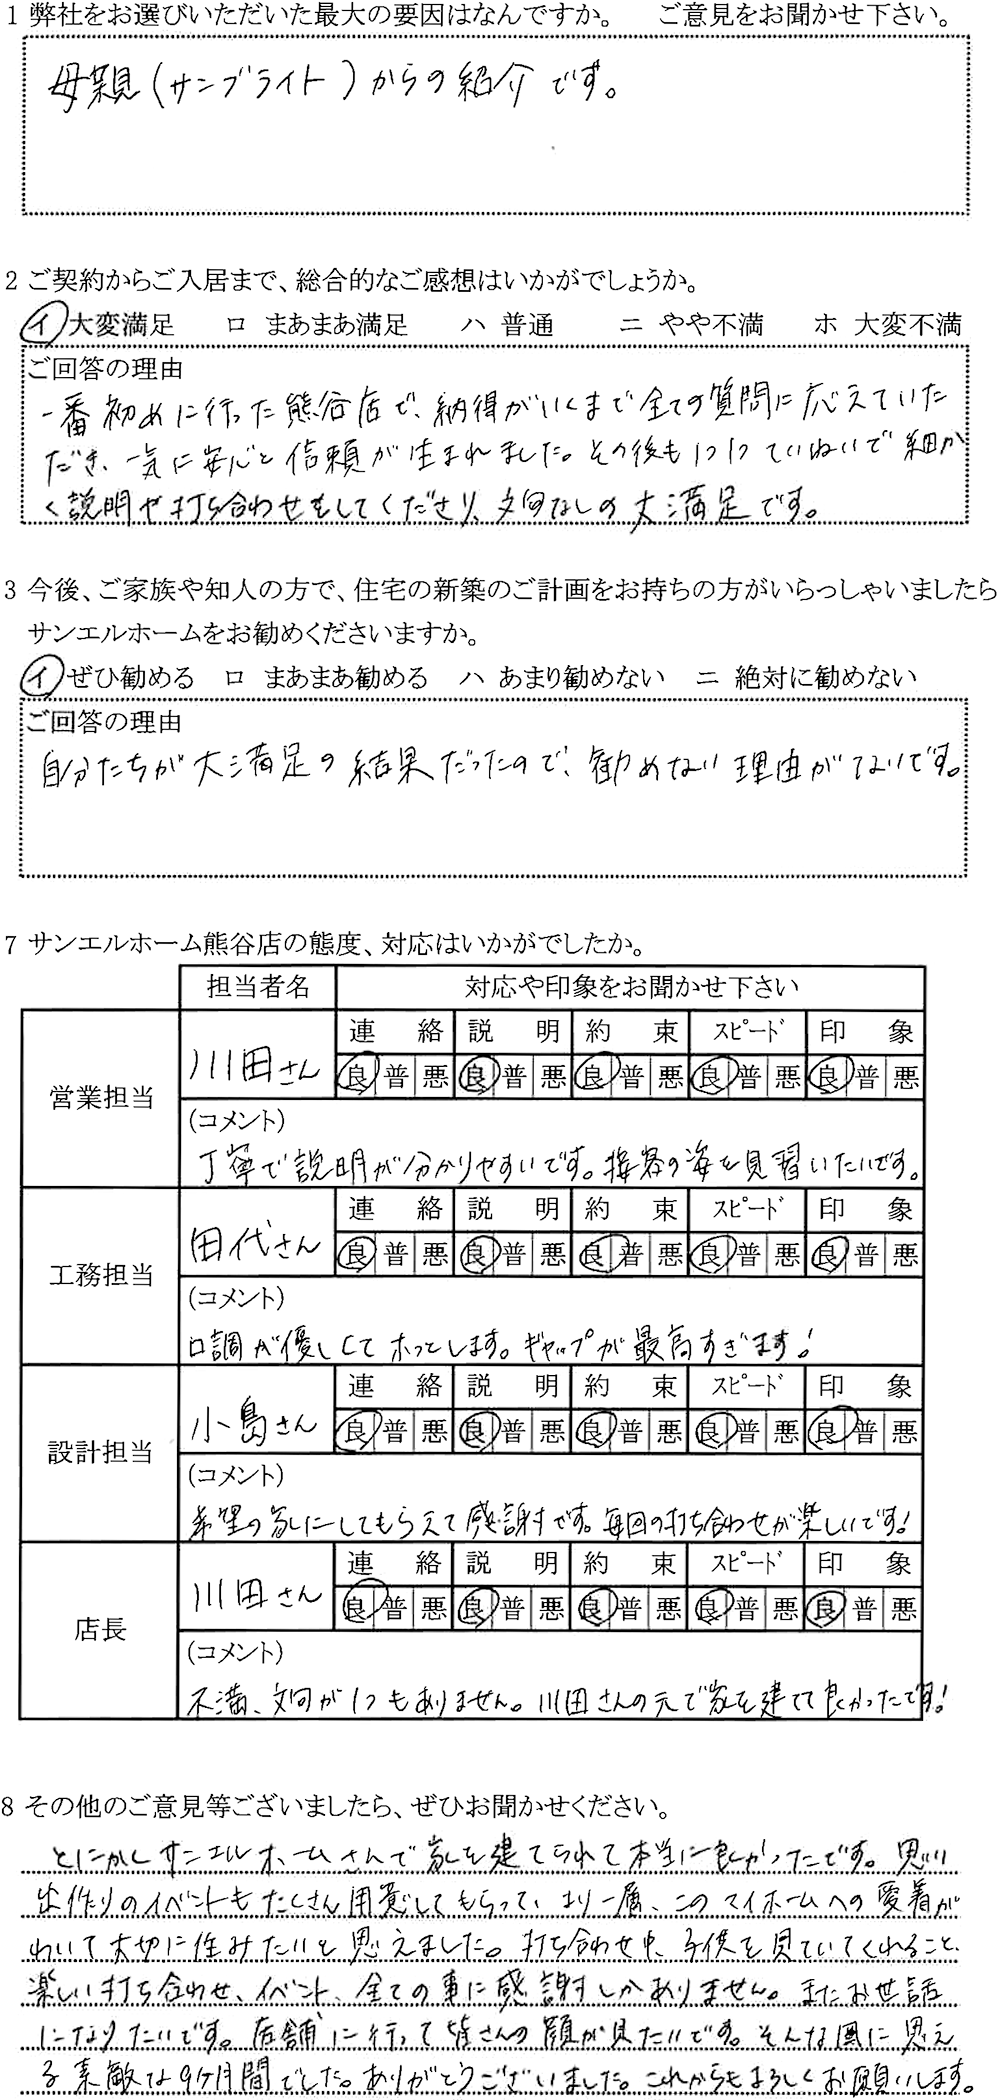 1 弊社をお選びいただいた最大の要因はなんですか。 ご意見をお聞かせ下さい。
母親(サンブライト)からの紹介です。
2 ご契約からご入居まで、総合的なご感想はいかがでしょうか。
イ 大変満足 ロ まあまあ満足 ハ 普通 ニ やや不満 ホ 大変不満
ご回答の理由
一番初めに行った熊谷店で、納得がいくまで全ての質問に応えていた
だき、一気に安心と信頼が生まれました。その後も1つ1つていねいで細か
く説明や打ち合わせをしてくださり、文句なしの大満足です。
3 今後、ご家族や知人の方で、住宅の新築のご計画をお持ちの方がいらっしゃいましたら
サンエルホームをお勧めくださいますか。
イ ぜひ勧める ロ まあまあ勧める ハ あまり勧めない ニ 絶対に勧めない
ご回答の理由
自分たちが大満足の結果だったので、勧めない理由がないです。
7 サンエルホーム熊谷店の態度、対応はいかがでしたか。
担当者名 対応や印象をお聞かせ下さい
営業担当 川田さん 連絡 説明 約束 スピード 印象
良 普 悪 良 普 悪 良 普 悪 良 普 悪 良 普 悪
(コメント)
丁寧で説明が分かりやすいです。接客の姿を見習いたいです。
工務担当 田代さん 連絡 説明 約束 スピード 印象
良 普 悪 良 普 悪 良 普 悪 良 普 悪 良 普 悪
(コメント)
口調が優しくてホっとします。ギャップが最高すぎます!
設計担当 小島さん 連絡 説明 約束 スピード 印象
良 普 悪 良 普 悪 良 普 悪 良 普 悪 良 普 悪
(コメント)
希望の家にしてもらえて感謝です。毎回の打ち合わせが楽しいです!
店長 川田さん 連絡 説明 約束 スピード 印象
良 普 悪 良 普 悪 良 普 悪 良 普 悪 良 普 悪
(コメント)
不満、文句が1つもありません。川田さんの元で家を建てて良かったです!
8 その他のご意見等ございましたら、ぜひお聞かせください。
とにかくサンエルホームさんで家を建てられて本当に良かったです。思い
出作りのイベントもたくさん用意してもらって、より一層、このマイホームへの愛着が
わいて大切に住みたいと思えました。打ち合わせ中、子供を見ていてくれること、
楽しい打ち合わせ、イベント、全ての事に感謝しかありません。またお世話
になりたいです。店舗に行って皆さんの顔が見たいです。そんな風に思え
る素敵な9ヶ月間でした。ありがとうございました。これからもよろしくお願いします。